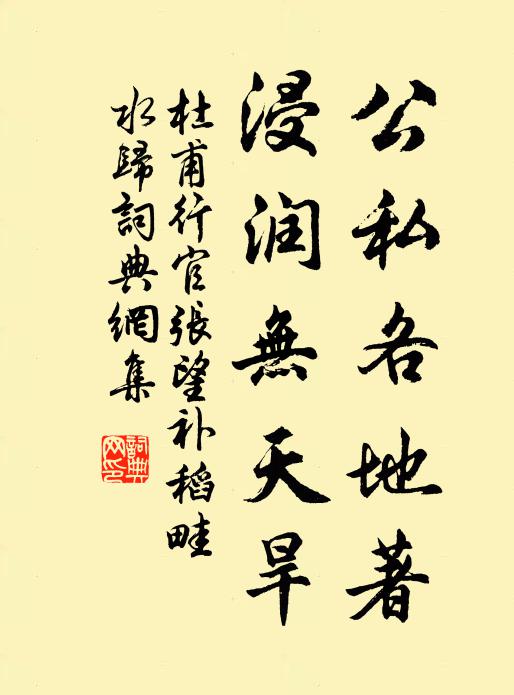 公私各地著
浸润無天旱
杜甫行官張望补稻畦
水歸詞典網集
詞典
网印